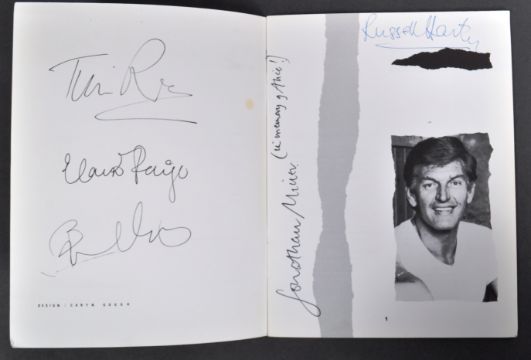 Tim Rice
Elaine Paige
DESIGN / CARYN GOUGH
Russell Harty
Jonathan Miller (in memory of